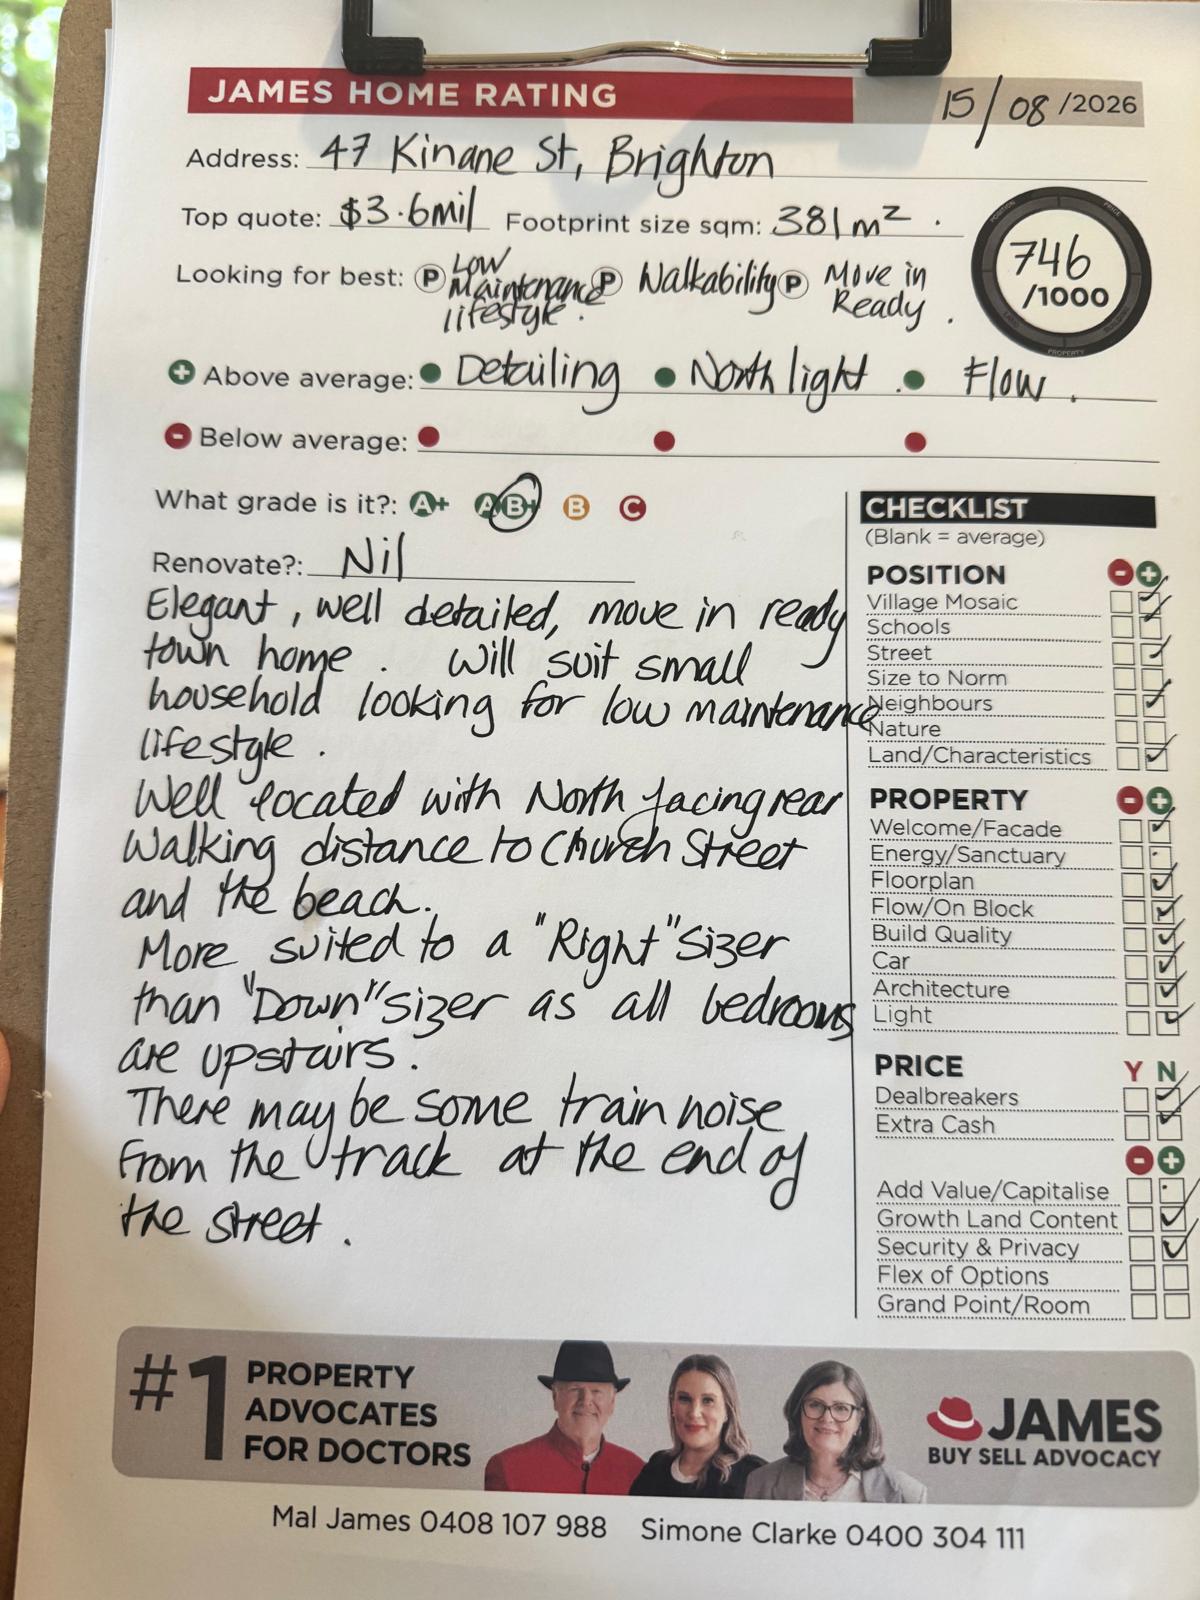 JAMES HOME RATING 15/08/2026
Address: 47 Kinane St, Brighton
Top quote: $3.6mil Footprint size sqm: 381m² .
746
/1000
Looking for best: P Low Maintenance lifestyle. P Walkability P Move in Ready.
+ Above average: Detailing North light. Flow.
- Below average:
What grade is it?: A+ A B+ B C
Renovate?: Nil
Elegant, well detailed, move in ready
town home. Will suit small
household looking for low maintenance
lifestyle.
Well located with North facing rear
Walking distance to Church Street
and the beach.
More suited to a "Right" sizer
than "Down" sizer as all bedrooms
are upstairs.
There may be some train noise
From the track at the end of
the street.
CHECKLIST
(Blank = average)
POSITION - +
Village Mosaic
Schools
Street
Size to Norm
Neighbours
Nature
Land/Characteristics
PROPERTY - +
Welcome/Facade
Energy/Sanctuary
Floorplan
Flow/On Block
Build Quality
Car
Architecture
Light
PRICE Y N
Dealbreakers
Extra Cash
- +
Add Value/Capitalise
Growth Land Content
Security & Privacy
Flex of Options
Grand Point/Room
#1 PROPERTY
ADVOCATES
FOR DOCTORS
JAMES
BUY SELL ADVOCACY
Mal James 0408 107 988 Simone Clarke 0400 304 111